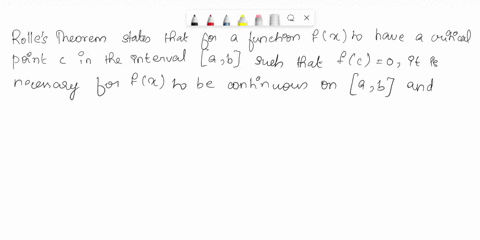 Rolle's Theorem states that for a function f(x) to have a critical
point c in the interval [a,b] such that f(c)=0, it is
necessary for f(x) to be continuous on [a,b] and